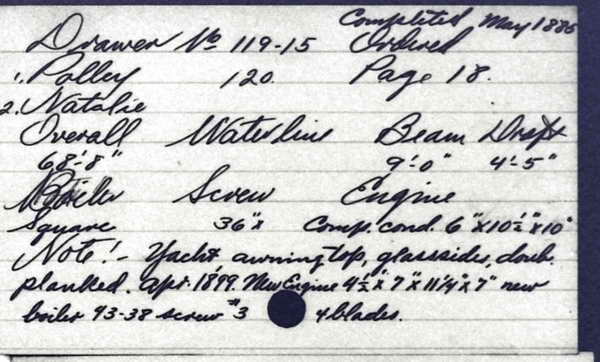 Completed May 1886
Drawer No 119-15 Ordered
1. Polley 120 Page 18.
2. Natalie
Overall Waterline Beam Draft
68'-8" 9'-0" 4'-5"
Boiler Screw Engine
Square 36"x Comp. cond. 6"x10½"x10"
Note! - Yacht awning top, glass sides, doub.
planked. Apr. 1899. New Engine 4½"x7"x11¼"x7" new
boiler 93-38 screw #3 4 blades.